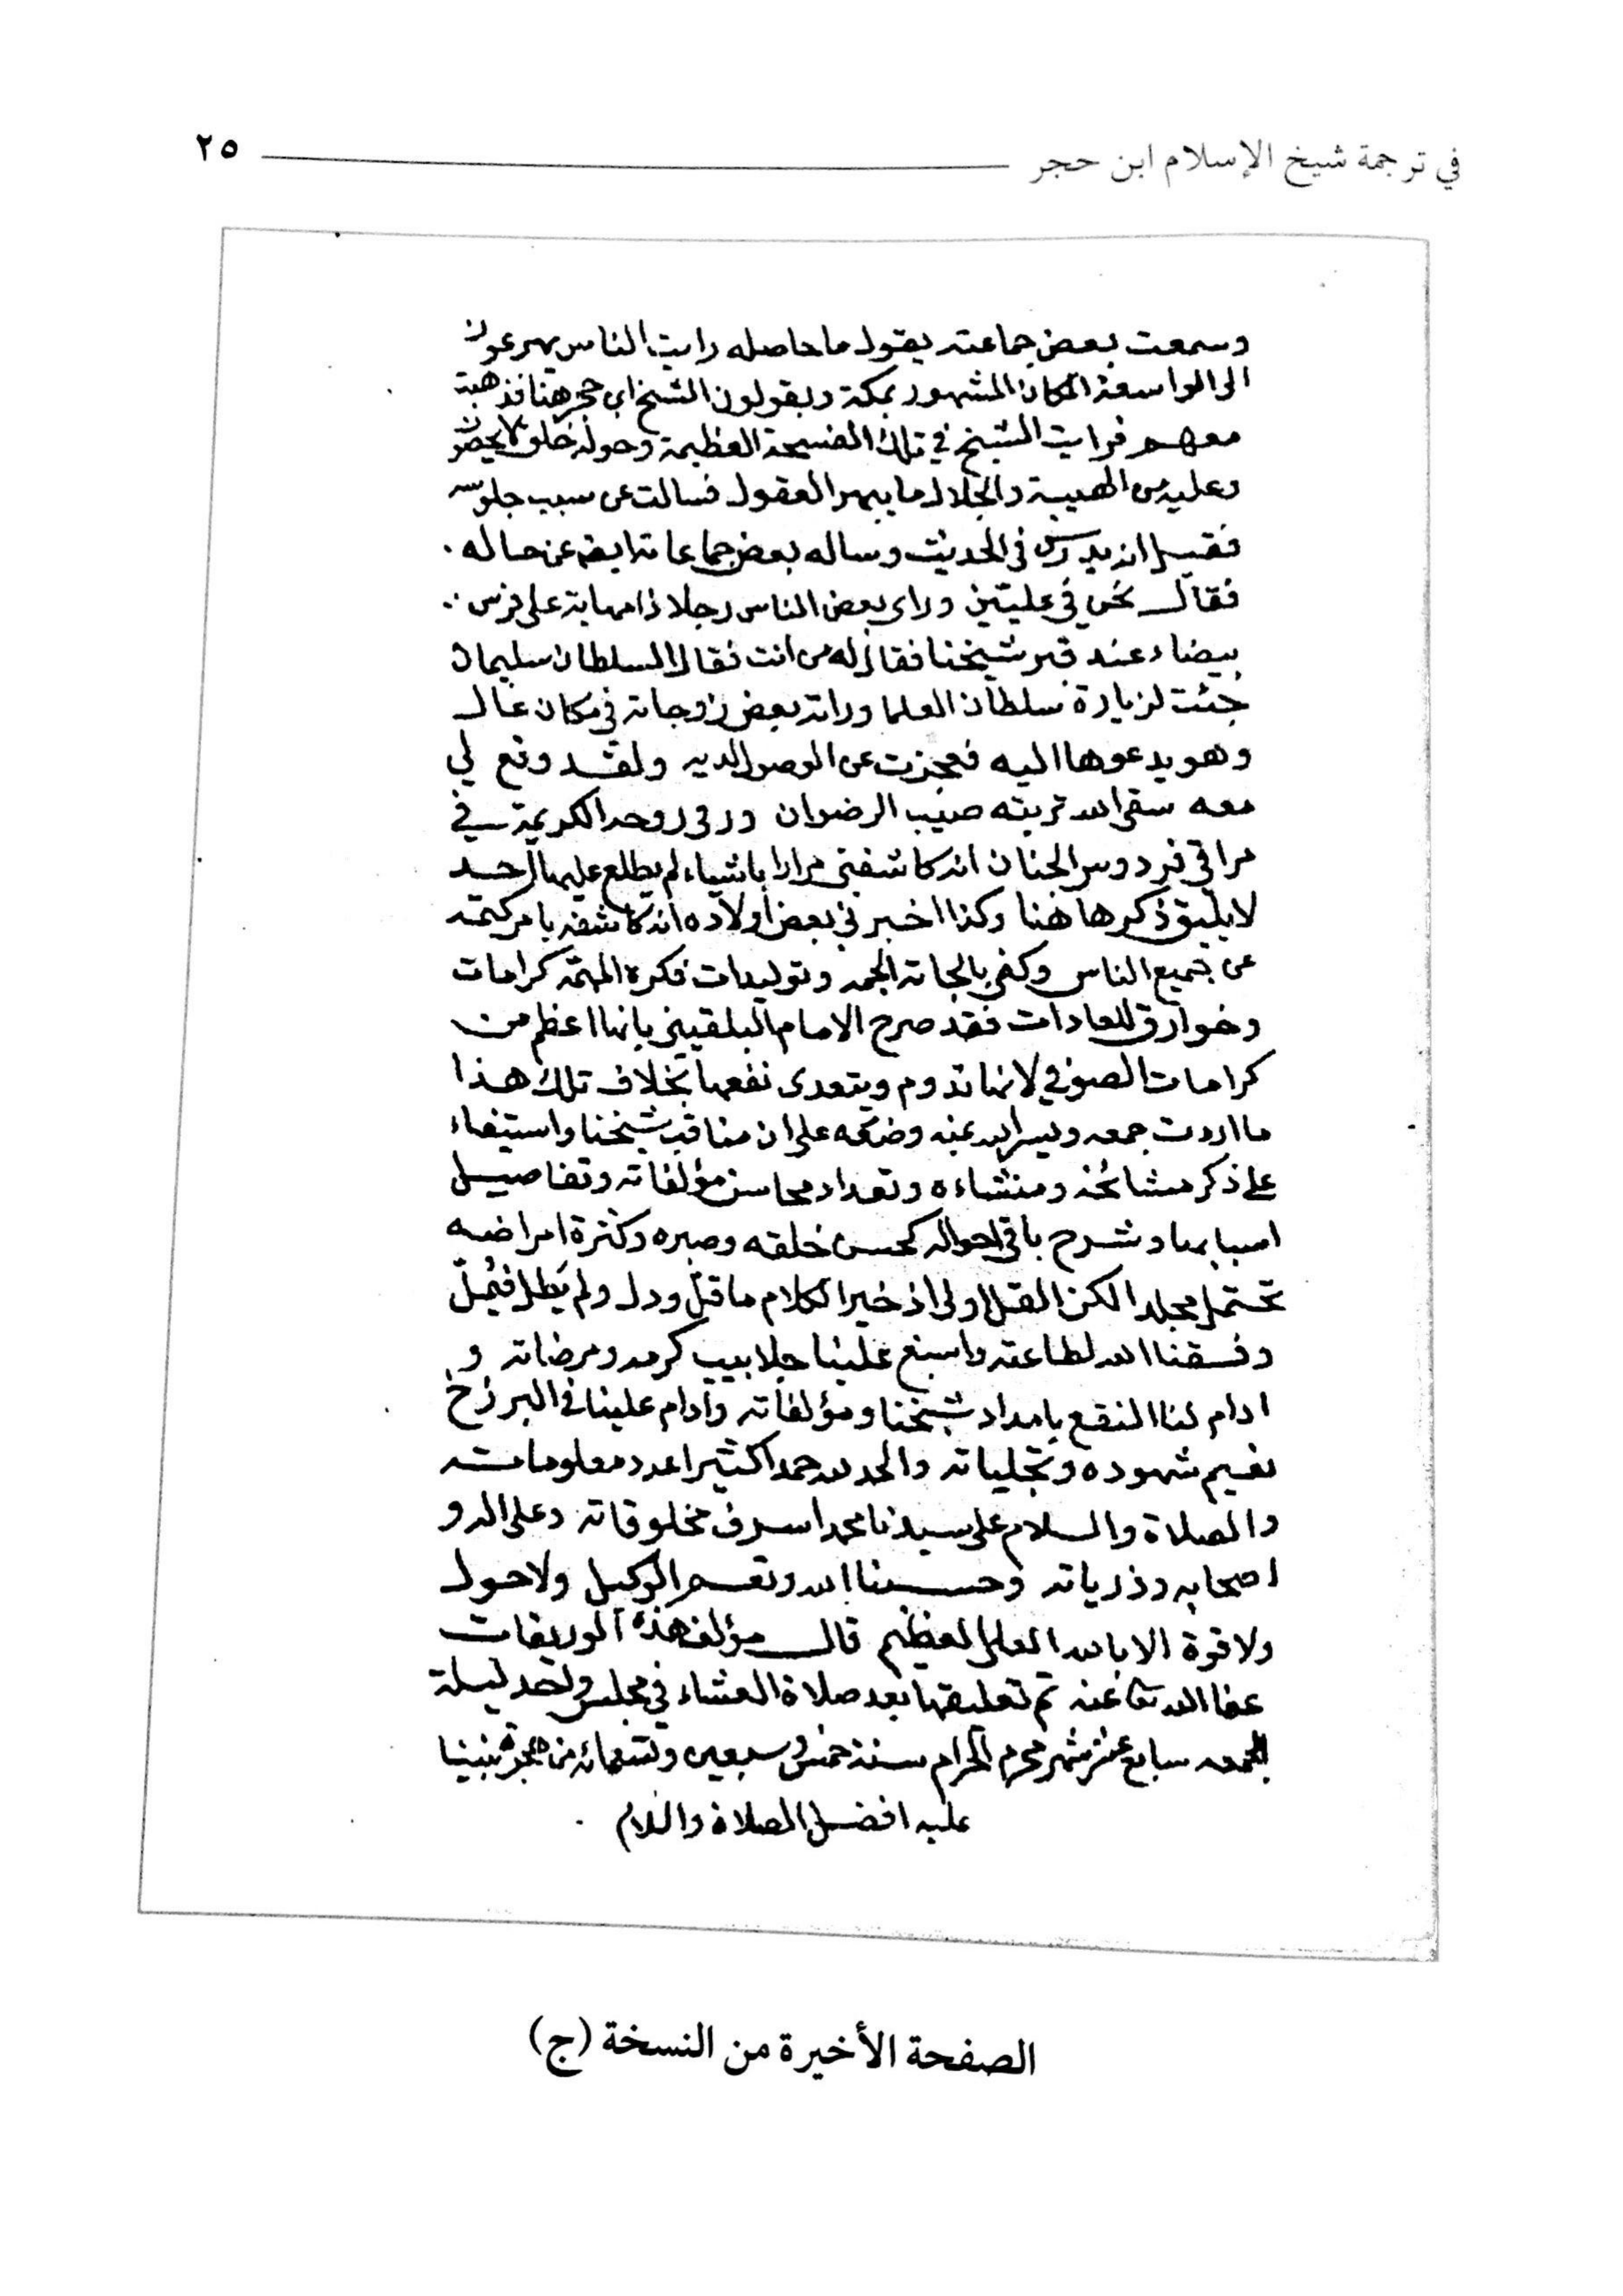 في ترجمة شيخ الإسلام ابن حجر ٢٥
وسمعت بعض جماعته يقول ما حاصله رايت الناس يهرعون
الى الواسعة المكان المشهور بمكة ويقولون الشيخ ابن حجر هنا فذهبت
معهم فرايت الشيخ في تلك الفسيحة العظيمة وحوله خلق لا يحصون
وعليه من الهيبة والجلال ما يبهر العقول فسالت عن سبب جلوسه
فقيل انه يدرس في الحديث وساله بعض جماعاته ايضا عن حاله .
فقال نحن في عليين وراى بعض الناس رجلا ذا مهابة على فرس
بيضاء عند قبر شيخنا فقال له من انت فقال السلطان سليمان
جئت لزيارة سلطان العلما وراته بعض زوجاته في مكان عال
وهو يدعوها اليه فعجزت عن الوصول اليه ولقد وقع لي
معه سقى الله تربته صيب الرضوان ورقى روحه الكريمة في
مراقي فردوس الجنان انه كاشفني مرارا باشياء لم يطلع عليها احد
لا يليق ذكرها هنا وكذا اخبرني بعض اولاده انه كاشفه بامر كتمه
عن جميع الناس وكفى بابحاثه الجمه وتوليدات فكره المهمة كرامات
وخوارق للعادات فقد صرح الامام البلقيني بانها اعظم من
كرامات الصوفي لانها تدوم ويتعدى نفعها بخلاف تلك هذا
ما اردت جمعه ويسر الله بمنه وضعه على ان مناقب شيخنا واستيفاء
ذكر مشائخه ومنشاءه وتعداد محاسن مؤلفاته وتفاصيل
اسبابها وشرح باقي احواله كحسن خلقه وصبره وكثرة امراضه
تحتمل مجلدا لكن القل اولى اذ خير الكلام ما قل ودل ولم يطل فيمل
وفقنا الله لطاعته واسبغ علينا جلابيب كرمه ومرضاته و
ادام لنا النفع بامداد شيخنا ومؤلفاته وادام علينا في البرزخ
نعيم شهوده وتجلياته والحمد لله حمدا كثيرا عدد معلوماته
والصلاة والسلام على سيدنا محمد اشرف مخلوقاته وعلى اله و
اصحابه وذرياته وحسبنا الله ونعم الوكيل ولا حول
ولا قوة الا بالله العلي العظيم قال مؤلف هذه الوريقات
عفا الله تعا عنه تم تعليقها بعد صلاة العشاء في مجلس واحد ليلة
الجمعه سابع عشر شهر محرم الحرام سنة خمس وسبعين وتسعمائه من هجرة نبينا
عليه افضل الصلاة والسلام
الصفحة الأخيرة من النسخة (ج)